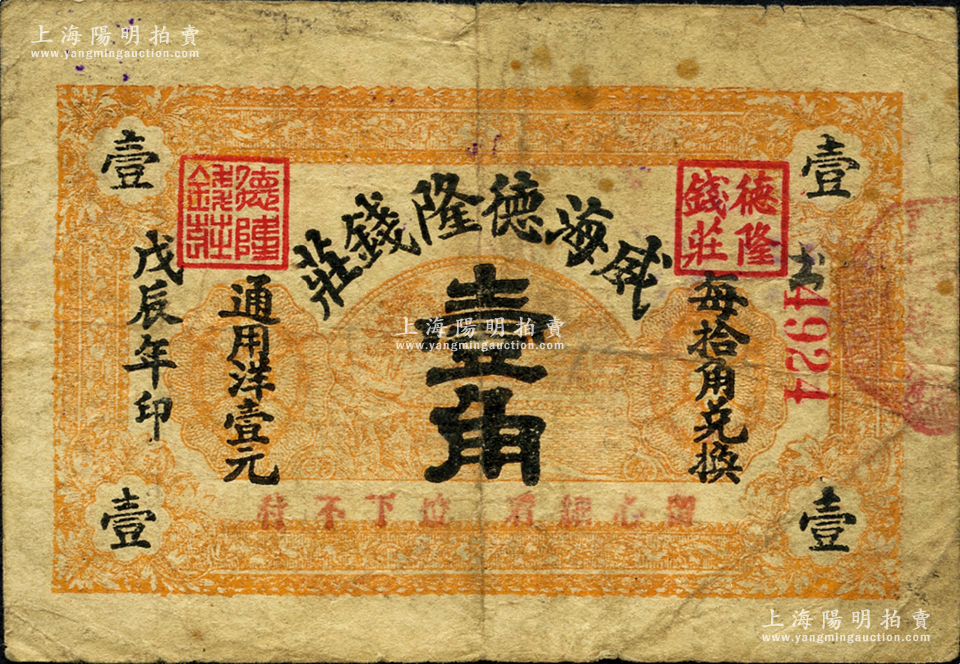 上海陽明拍賣
www.yangmingauction.com
壹
壹
德隆
錢莊
德隆
錢莊
威海德隆錢莊
壹角
每拾角兌換
通用洋壹元
戊辰年印
4924
上海陽明拍賣
www.yangmingauction.com
留心細看 過下不付
壹
壹
上海陽明拍賣
www.yangmingauction.com